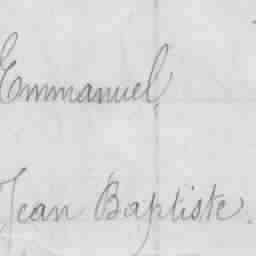 Emmanuel,
Jean Baptiste.